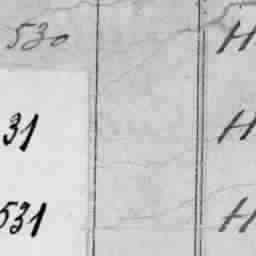 530 H
31 H
531 H